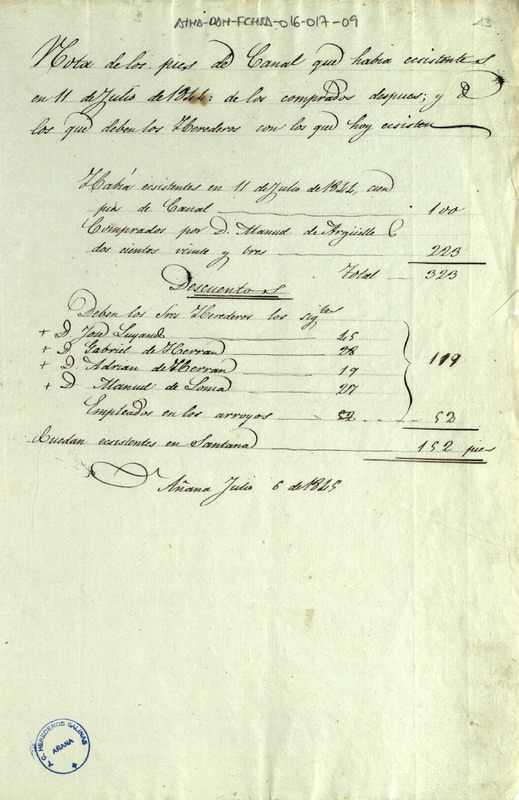 ATHA-DAH-FCHSA-016-017-09
13
Nota de los pies de Canal que habia ecsistentes
en 11 de Julio de 1844: de los comprados despues; y de
los que deben los Herederos con los que hoy ecsisten
Habia ecsistentes en 11 de Julio de 1844, cien
pies de Canal 100
Comprados por D. Manuel de Argüelle
dos cientos veinte y tres 223
Total 323
Descuentos
Deben los Sres Herederos los sigtes
+ D. José Luyand 45
+ D. Gabriel de Herran 28
+ D. Adrian de Herran 19
+ D. Manuel de Loma 27
119
Empleados en los arroyos 52 52
Quedan ecsistentes en Santana 152 pies
Añana Julio 6 de 1845
A. C. HEREDEROS SALINAS
AÑANA